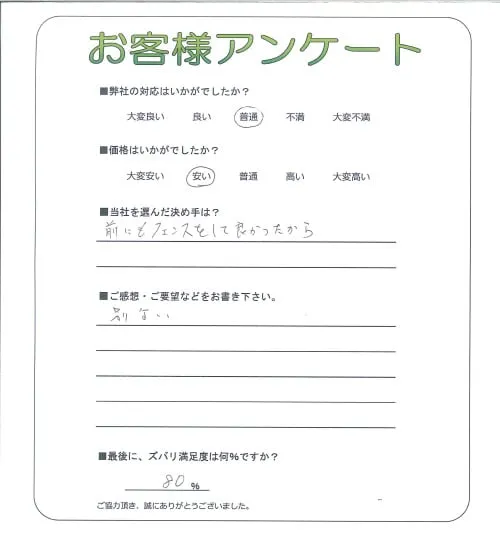 お客様アンケート
■弊社の対応はいかがでしたか？
大変良い 良い 普通 不満 大変不満
■価格はいかがでしたか？
大変安い 安い 普通 高い 大変高い
■当社を選んだ決め手は？
前にもフェンスをして良かったから
■ご感想・ご要望などをお書き下さい。
別ない
■最後に、ズバリ満足度は何％ですか？
80 %
ご協力頂き、誠にありがとうございました。